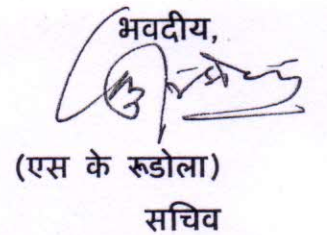 भवदीय,
(एस के रूडोला)
सचिव